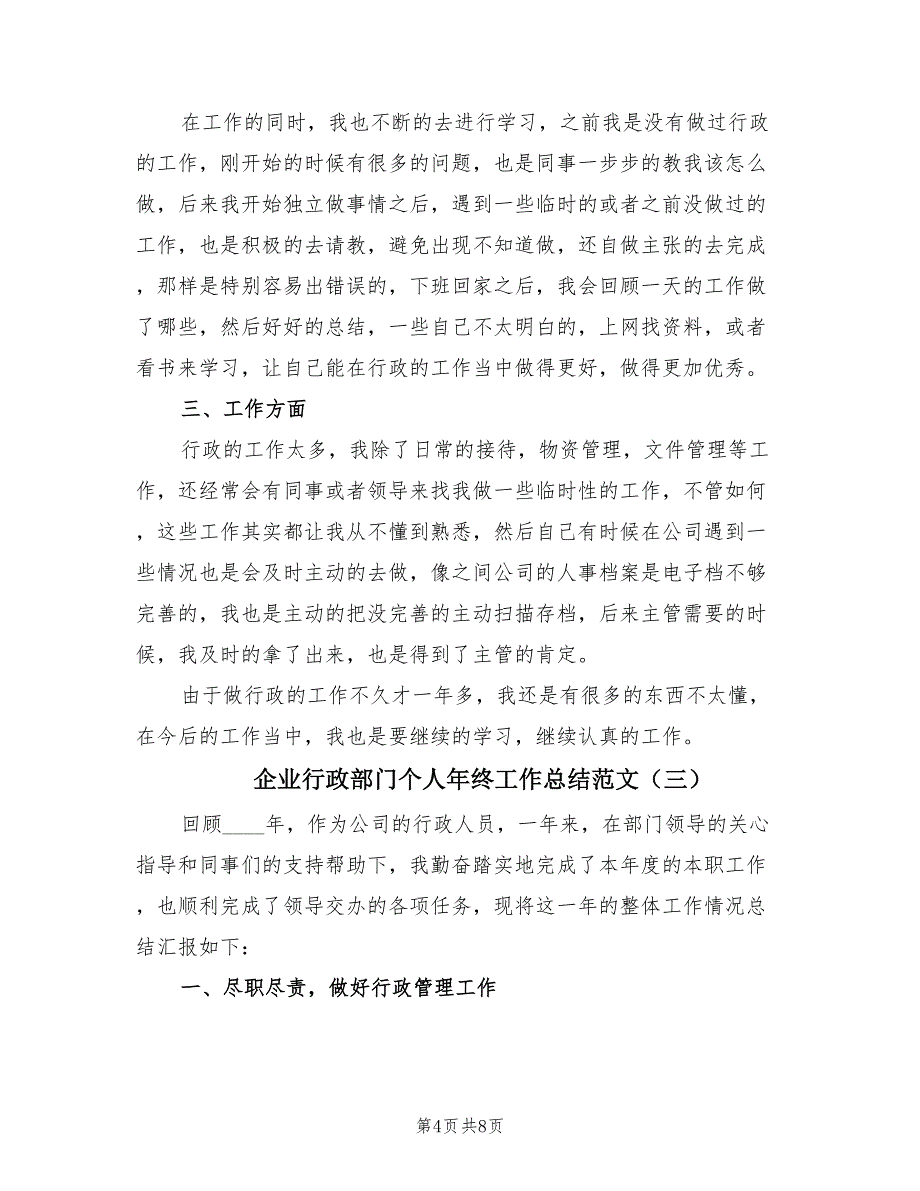 在工作的同时，我也不断的去进行学习，之前我是没有做过行政
的工作，刚开始的时候有很多的问题，也是同事一步步的教我该怎么
做，后来我开始独立做事情之后，遇到一些临时的或者之前没做过的
工作，也是积极的去请教，避免出现不知道做，还自做主张的去完成
，那样是特别容易出错误的，下班回家之后，我会回顾一天的工作做
了哪些，然后好好的总结，一些自己不太明白的，上网找资料，或者
看书来学习，让自己能在行政的工作当中做得更好，做得更加优秀。
三、工作方面
行政的工作太多，我除了日常的接待，物资管理，文件管理等工
作，还经常会有同事或者领导来找我做一些临时性的工作，不管如何
，这些工作其实都让我从不懂到熟悉，然后自己有时候在公司遇到一
些情况也是会及时主动的去做，像之间公司的人事档案是电子档不够
完善的，我也是主动的把没完善的主动扫描存档，后来主管需要的时
候，我及时的拿了出来，也是得到了主管的肯定。
由于做行政的工作不久才一年多，我还是有很多的东西不太懂，
在今后的工作当中，我也是要继续的学习，继续认真的工作。
企业行政部门个人年终工作总结范文（三）
回顾____年，作为公司的行政人员，一年来，在部门领导的关心
指导和同事们的支持帮助下，我勤奋踏实地完成了本年度的本职工作
，也顺利完成了领导交办的各项任务，现将这一年的整体工作情况总
结汇报如下：
一、尽职尽责，做好行政管理工作
第4页 共8页